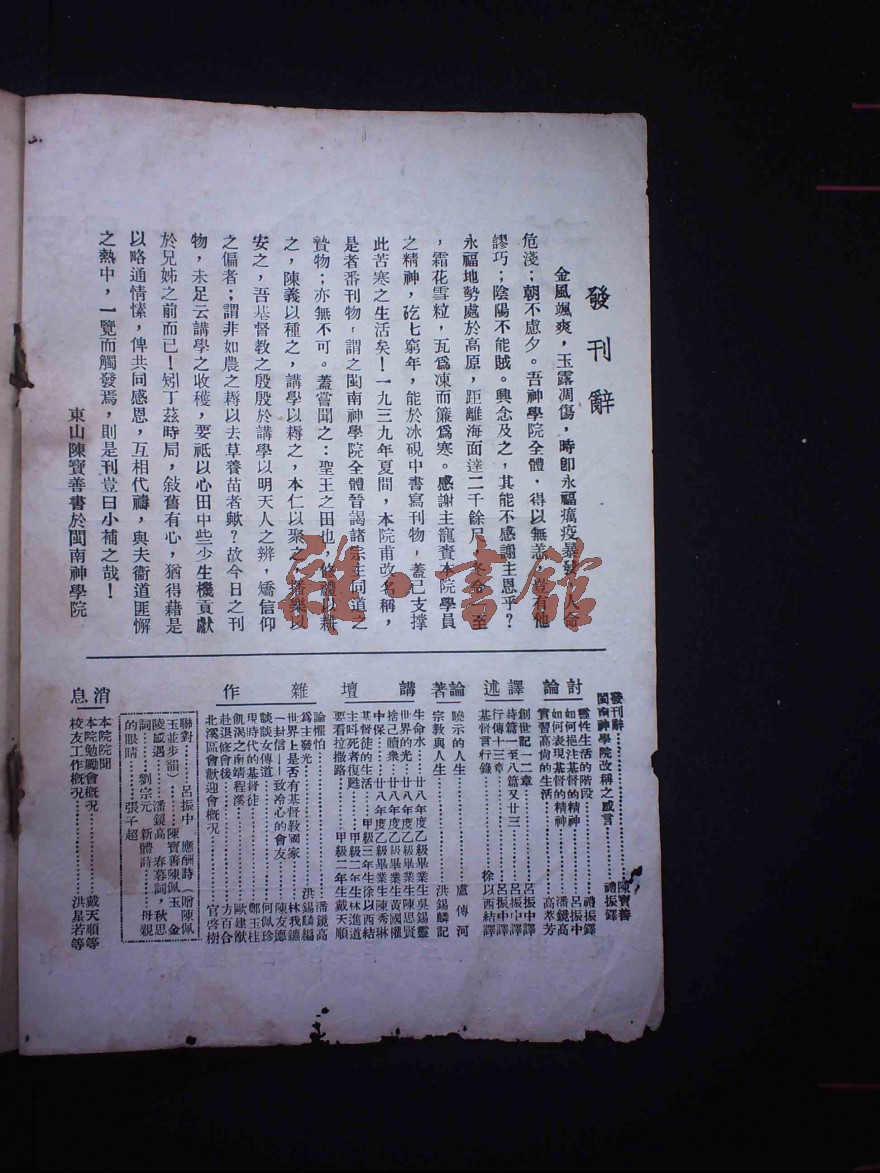 發刊辭
金風颯爽，玉露凋傷，時卽永福癘疫暴發，人命
危淺；朝不慮夕。吾神學院全體，得以無恙，豈有他
謬巧；陰陽不能賊。興念及之，其能不感謝主恩乎？
永福地勢處於高原，距離海面達二千餘尺，冬令一至
，霜花雪粒，瓦爲凍而簾爲寒。感謝主寵賚本院學員
之精神，矻七窮年，能於冰硯中書寫刊物，蓋己支撐
此苦寒之生活矣！一九三九年夏間，本院甫改名稱，
是者番刊物，謂之閩南神學院全體晉謁諸宗主同道之
贄物；亦無不可。蓋嘗聞之：聖王之田也，修禮以耕
之，陳義以種之，講學以耨之，本仁以聚之，播樂以
安之，吾基督教之殷殷於講學以明天人之辨，矯信仰
之偏者；謂非如農之耨以去草養苗者歟？故今日之刊
物，未足云講學之收穫，要祇以心田中些少生機貢獻
於兄姊之前而已！矧丁茲時局，敍舊有心，猶得藉是
以略通情愫，俾共同感恩，互相代禱，與夫衞道匪懈
之熱中，一覽而觸發焉，則是刊豈曰小補之哉！
東山陳寶善書於閩南神學院
發刊辭 陳寶善
閩南神學院改稱之感言 禮振鐸
討論
靈性生活的階段 禮振鐸
如何挹注基督的精神 呂振中
如何表現基督的精神 潘鏡高
實習高尙的生活 高萃芳
譯述
創世記一二章 呂振中譯
詩篇一至八篇又廿三 呂振中譯
行傳十三章 呂振中譯
基督言行錄 徐以西結譯
論著
曉示的人生 盧傳河
宗教與人生 洪錫麟記
講壇
生命水 廿八年度乙級畢業生吳錫靈
世界的光 廿八年度乙級畢業生陳思賢
捨己贖衆 廿八年度乙級畢業生黃國權
中保 廿八年度乙級畢業生陳秀琳
基督徒的生活 甲級三年生徐以西結
主呌死者復甦 甲級二年生林進道
要看拉撒路 甲級二年生戴天順
雜作
論懼怕 潘鏡高
爲主發光 洪錫麟編
世界上是否有基督敎國家 林我鐮
一封信—致冷心的會友 陳友德
談談女傳道 何佩珍
現時代的基督徒 鄭玉桂
飢渴之南靖程溪 歐建猷
赴退修會後 方百合
北溪區會歡迎會概況 官啓樹
聯對 呂振中 應酬詩（贈陳佩
玉並步韻） 陳寶善陳佩玉 金
陵感遇 潘鏡高 春暮詞，秋思
詞 劉宗元 新體詩 母親
的眼睛 張子超
消息
本院院聞
本院勉勵會概況 戴天順等
校友工作概況 洪星若等
雅·書館